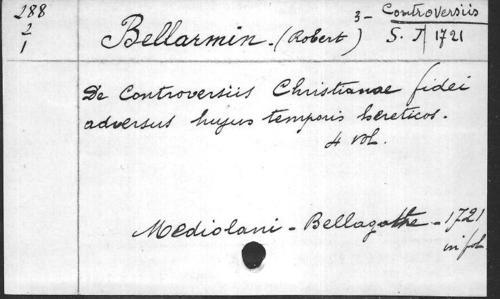 288
2
1
Bellarmin. (Robert)
3- Controversiis
S. J 1721
De Controversiis Christianae fidei
adversus hujus temporis hereticos.
4 vol.
Mediolani - Bellagathe - 1721
in fol